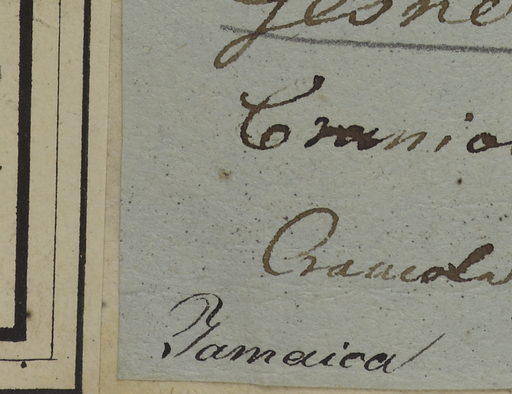 Gesne
Cranio
Craniola
Jamaica